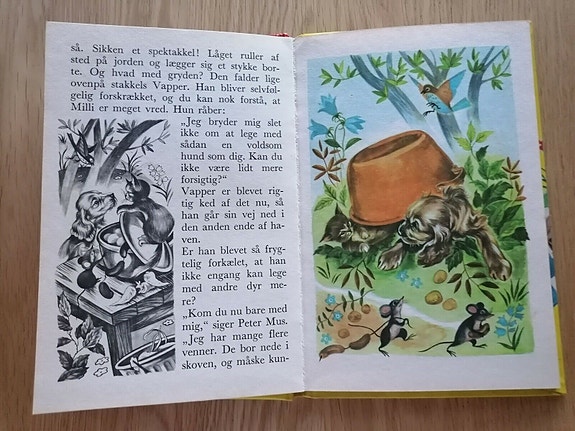 så. Sikken et spektakkel! Låget ruller af
sted på jorden og lægger sig et stykke bor-
te. Og hvad med gryden? Den falder lige
ovenpå stakkels Vapper. Han bliver selvføl-
gelig forskrækket, og du kan nok forstå, at
Milli er meget vred. Hun råber:
„Jeg bryder mig slet
ikke om at lege med
sådan en voldsom
hund som dig. Kan du
ikke være lidt mere
forsigtig?“
Vapper er blevet rig-
tig ked af det nu, så
han går sin vej ned i
den anden ende af ha-
ven.
Er han blevet så fryg-
telig forkælet, at han
ikke engang kan lege
med andre dyr me-
re?
„Kom du nu bare med
mig,“ siger Peter Mus.
„Jeg har mange flere
venner. De bor nede i
skoven, og måske kun-